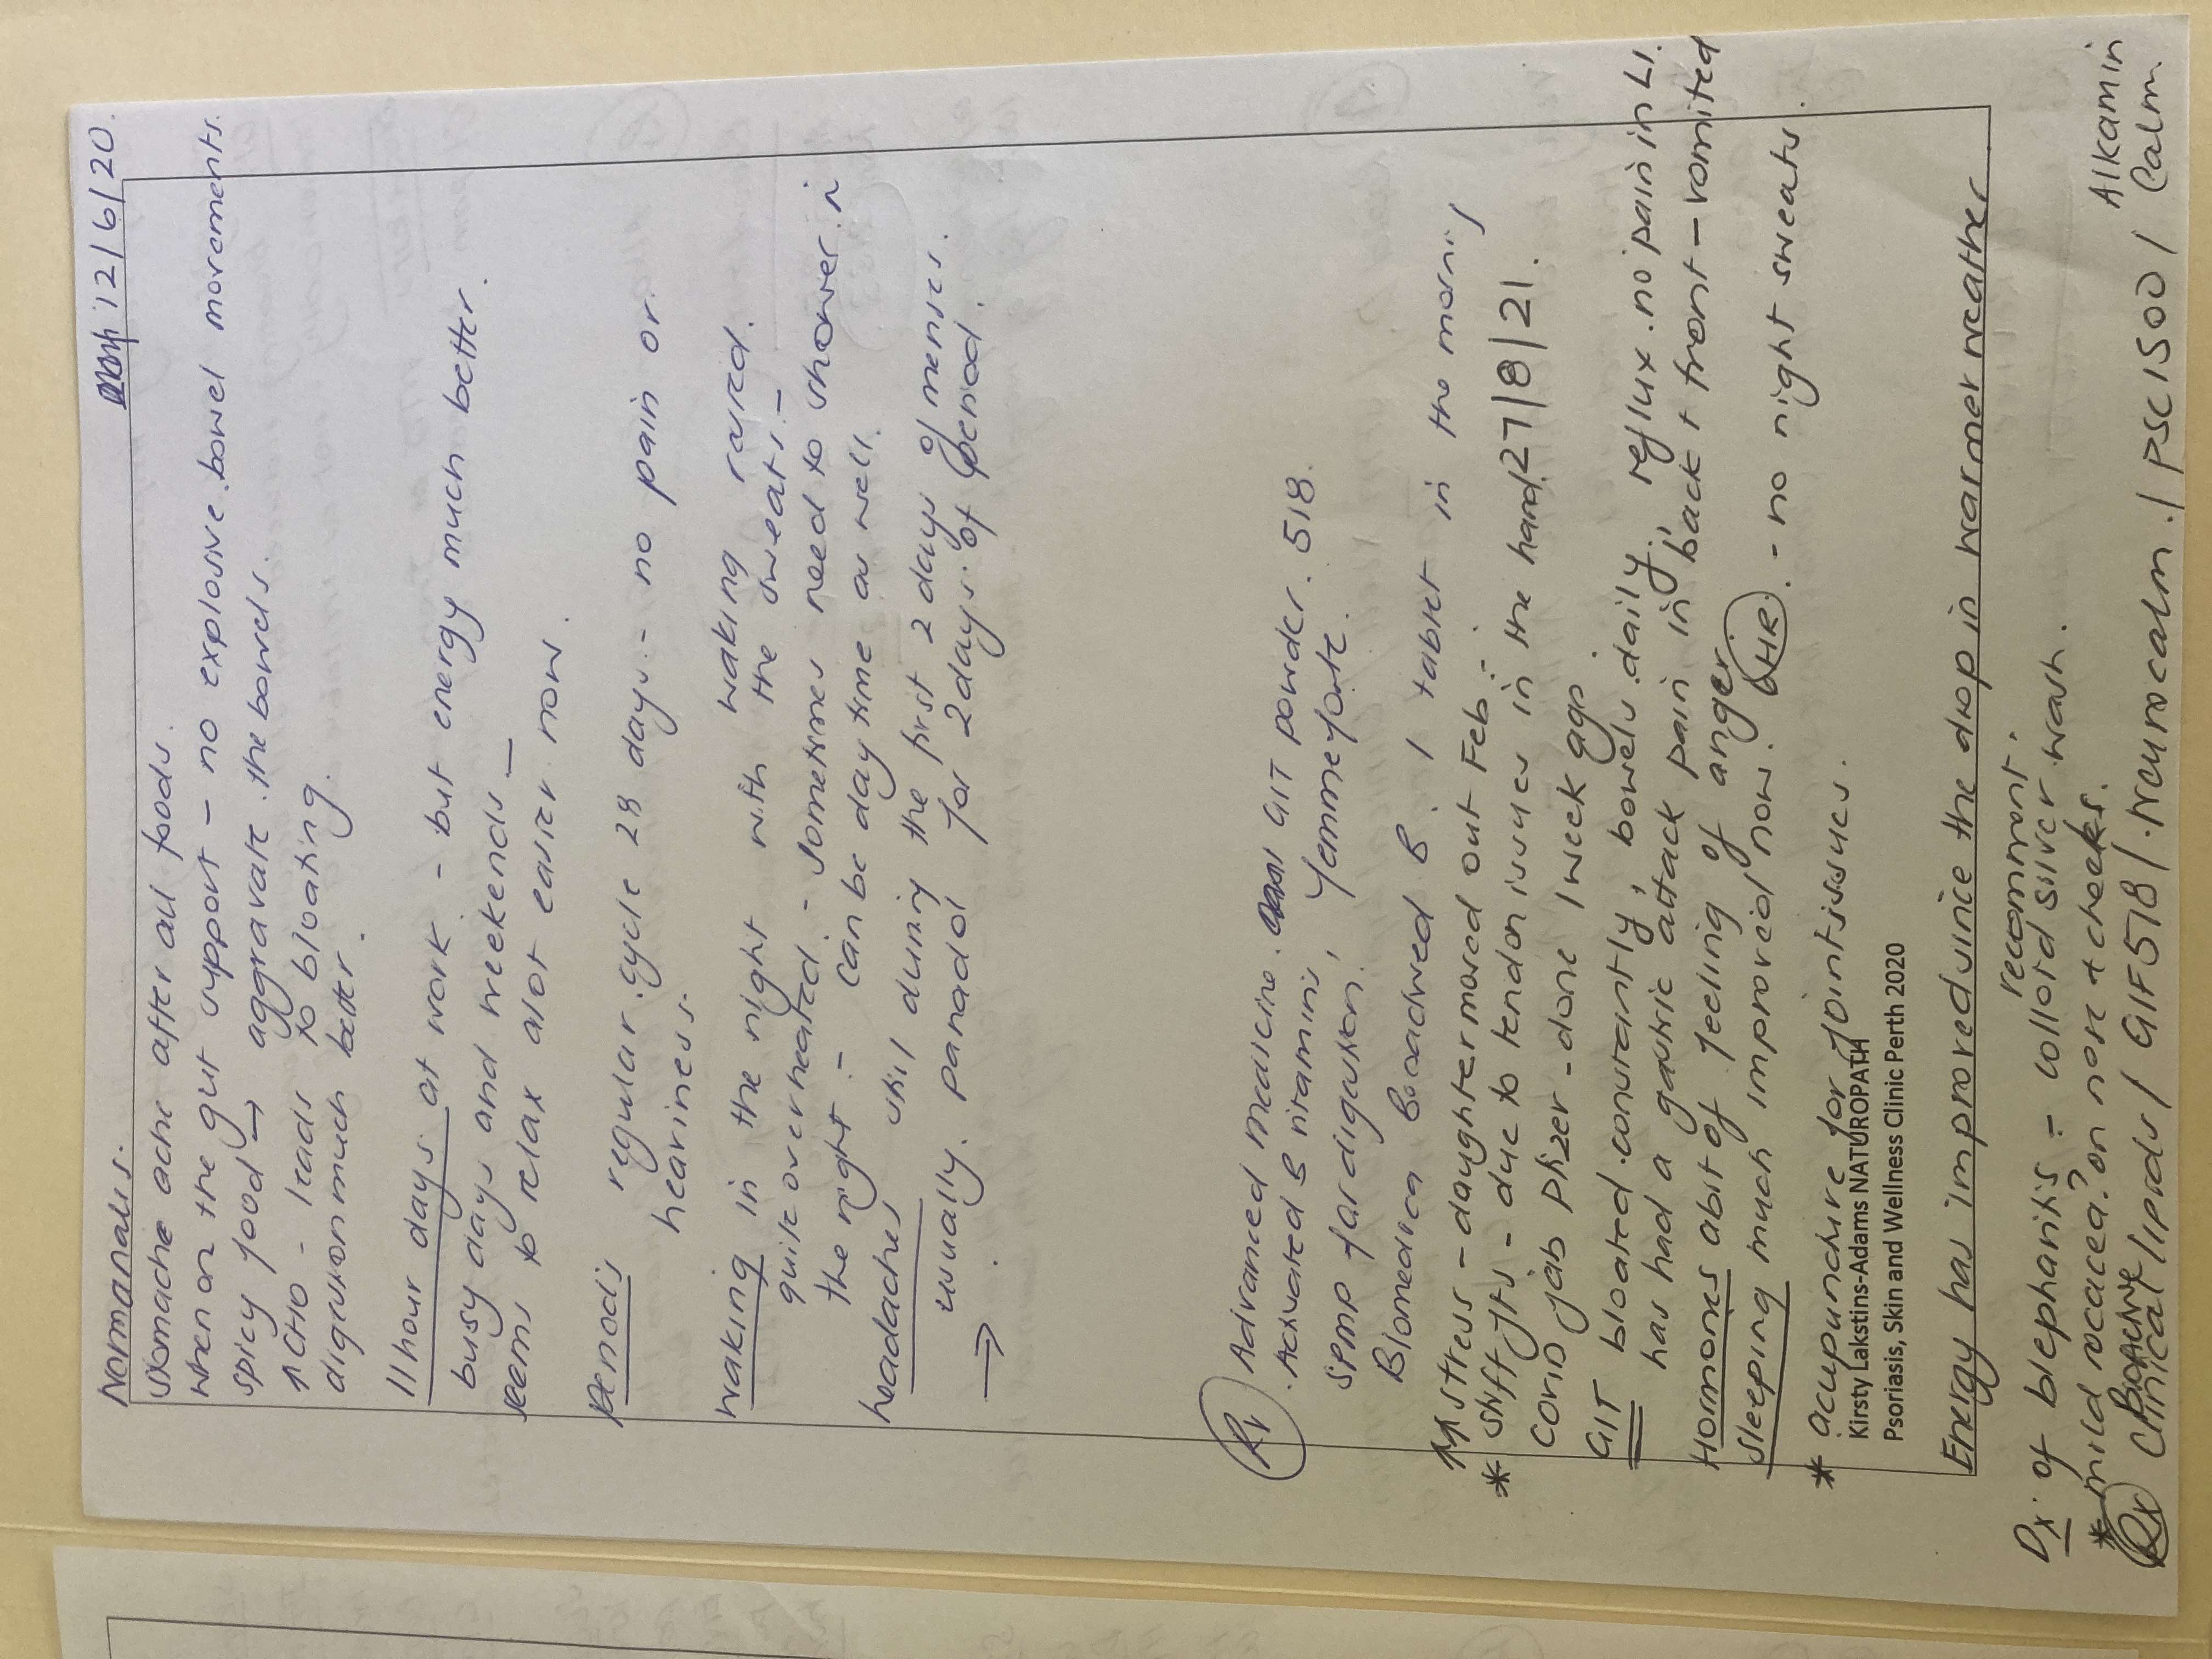 12/6/20.
Normanals.
stomache ache after all foods.
when on the gut support - no explosive bowel movements.
spicy food → aggravate the bowels.
↑CHO - leads to bloating.
digestion much better.
11 hour days at work - but energy much better.
busy days and weekends -
seems to relax alot easier now.
Periods regular cycle 28 days - no pain or
heaviness.
waking in the night with waking
quite overheated - the sweats -
the night - sometimes need to shower in
can be day time as well.
headaches still during the first 2 days of menses.
usually. panadol for 2 days of period.
→
Rx Advanced medicine GIT powder. 518.
Activated B vitamins,
SPMP for digestion. Femme forte.
Biomedica Bioadvred B 1 tablet in the morning
↑stress - daughter moved out Feb -
* stiff jts - due to tendon issues in the hand. 27/8/21.
COVID jab Phizer - done 1 week ago.
GIT bloated constantly, bowels daily. reflux. no pain in LI.
has had a gastric attack pain in back + front - vomited
Hormones abit of feeling of anger
Sleeping much improved now. HR. - no night sweats.
* acupuncture for joint issues.
Kirsty Lakstins-Adams NATUROPATH
Psoriasis, Skin and Wellness Clinic Perth 2020
Energy has improved since the drop in warmer weather
recommont.
Dx of blepharitis - colloid silver wash.
* mild rosacea? on nose + cheeks.
Rx Bioactive Clinical lipids / GIF 518 / Neurocalm. / PSC 1500 / Alkamin
Calm.